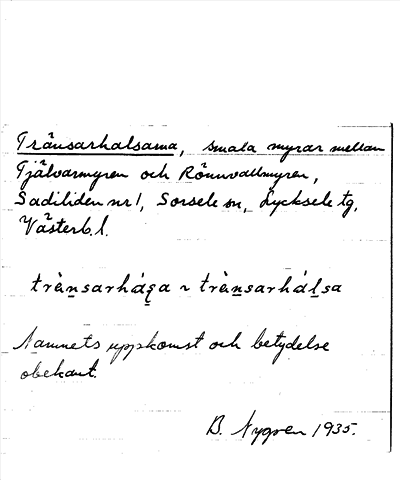 Tränsarhalsarna, smala myrar mellan
Tjälvarmyren och Rönnvallmyren,
Sadiliden nr 1, Sorsele sn, Lycksele tg,
Västerb. l.
trànsarháɀa ~ trànsarhálsa
Namnets uppkomst och betydelse
obekant.
B. Nygren 1935.